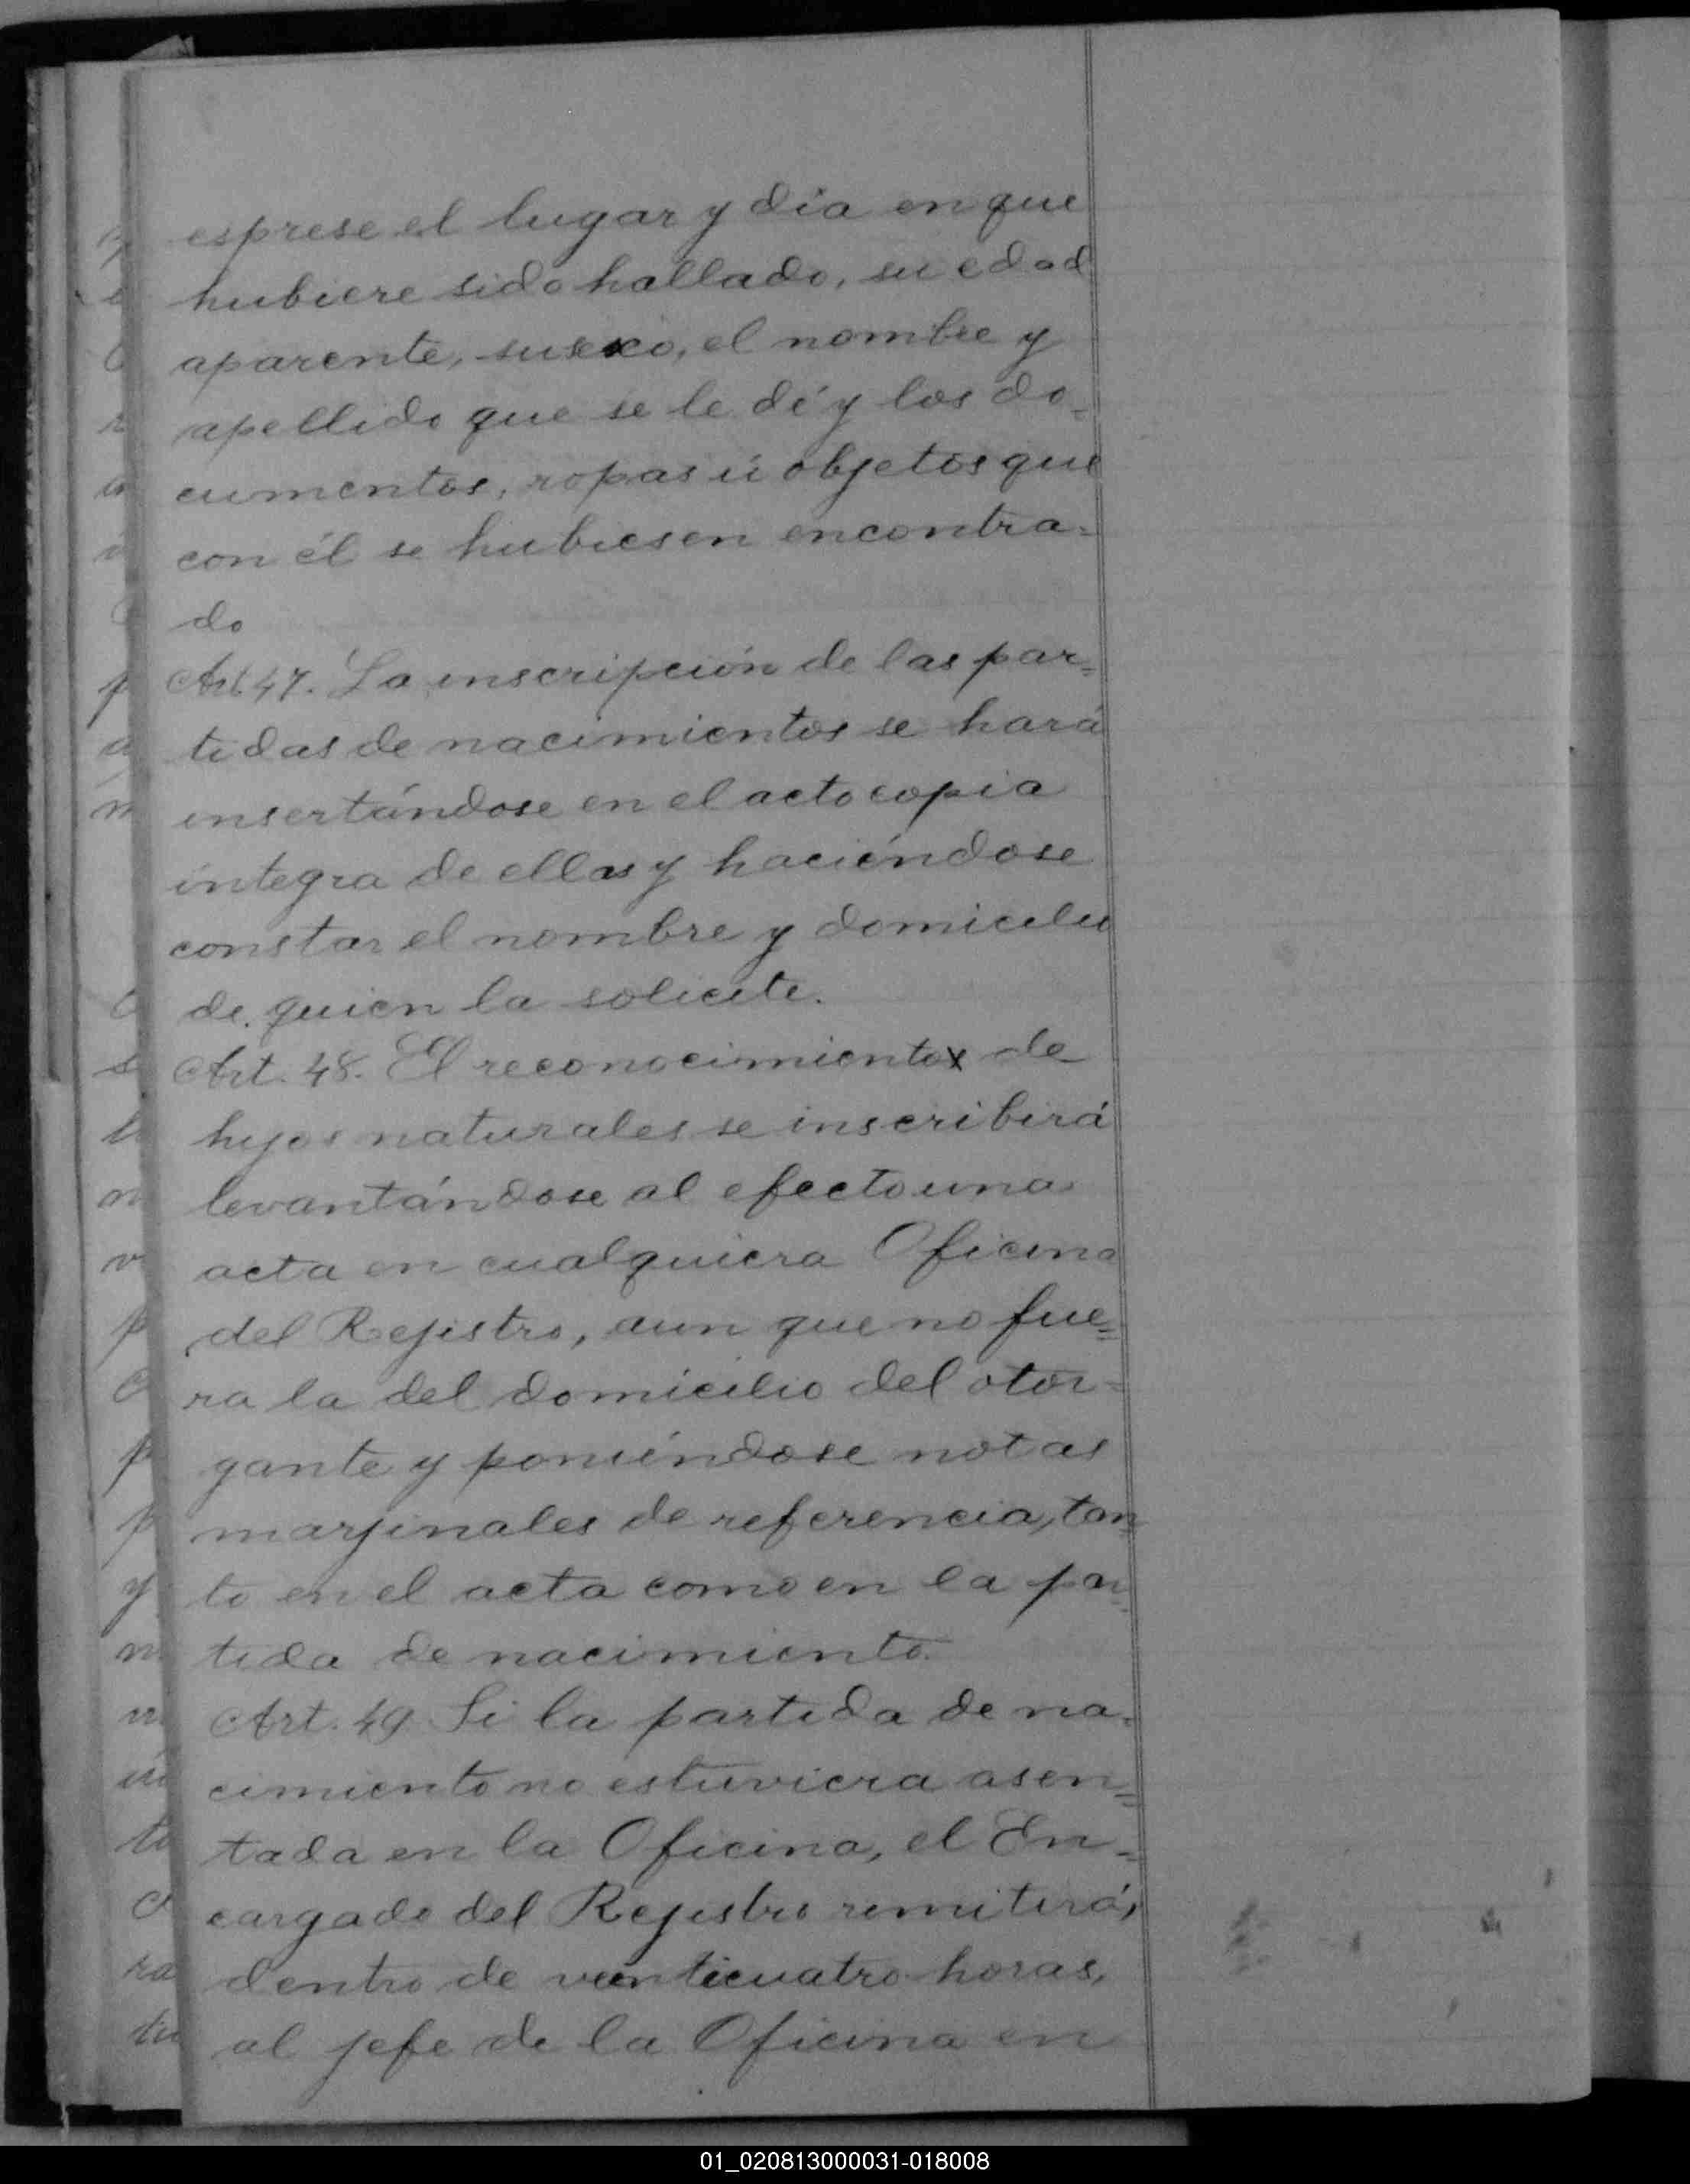 esprese el lugar y dia en que
hubiere sido hallado, su edad
aparente, su sexo, el nombre y
apellido que se le dé y los do=
cumentos, ropas ú objetos que
con él se hubiesen encontra=
do
Art. 47. La inscripción de las par=
tidas de nacimientos se hará
insertándose en el acto copia
íntegra de ellas y haciéndose
constar el nombre y domicilio
de quien la solicite.
Art. 48. El reconocimiento de
hijos naturales se inscribirá
levantándose al efecto una
acta en cualquiera Oficina
del Rejistro, aun que no fue=
ra la del domicilio del otor=
gante y poniéndose notas
marjinales de referencia, tan
to en el acta como en la par=
tida de nacimiento.
Art. 49 Si la partida de na=
cimiento no estuviera asen=
tada en la Oficina, el En=
cargado del Rejistro remitirá,
dentro de veinticuatro horas,
al jefe de la Oficina en
01_020813000031-018008